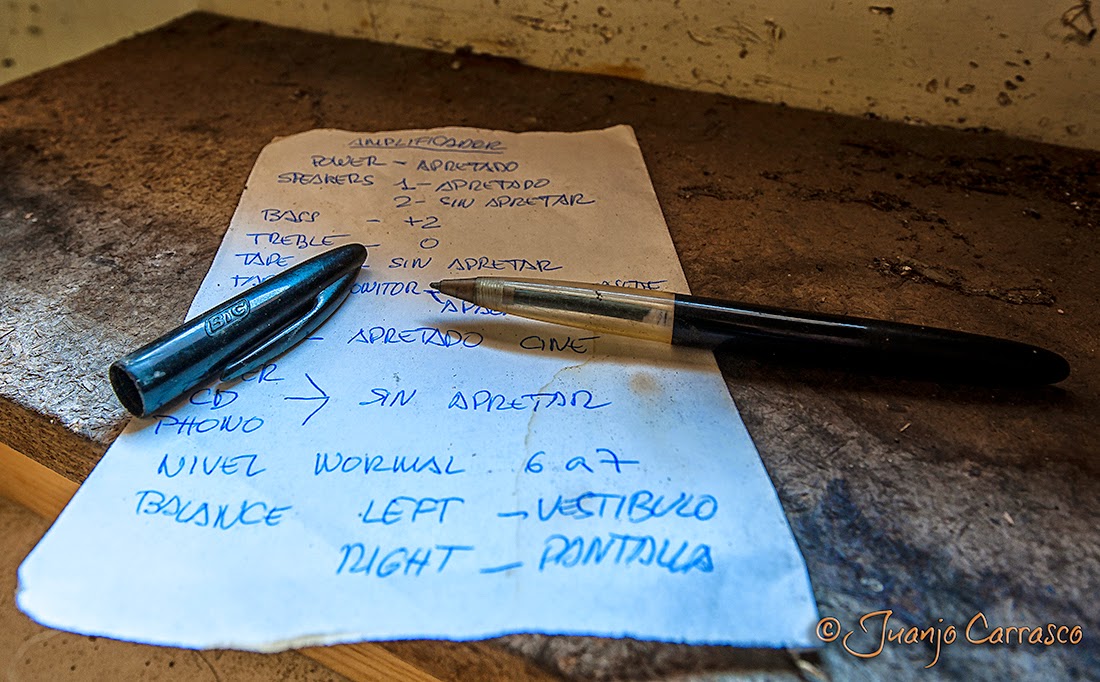 AMPLIFICADOR
POWER - APRETADO
SPEAKERS 1- APRETADO
2- SIN APRETAR
BASS - +2
TREBLE - 0
TAPE - SIN APRETAR
MONITOR -
- APRETADO CINE
CD → SIN APRETAR
PHONO
NIVEL NORMAL 6 a 7
BALANCE LEFT - VESTIBULO
RIGHT - PANTALLA
BIC
© Juanjo Carrasco